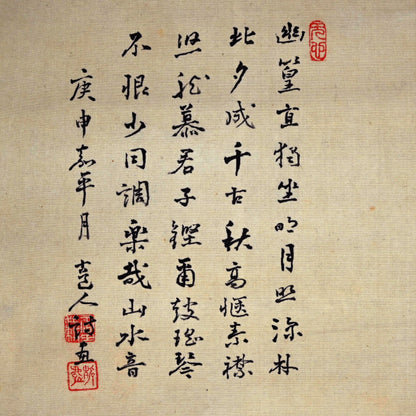 幽篁宜獨坐明月照深林
此夕成千古秋高愜素襟
悠然慕君子鏗爾鼓瑤琴
不恨少同調樂哉山水音
庚申嘉平月 人詩